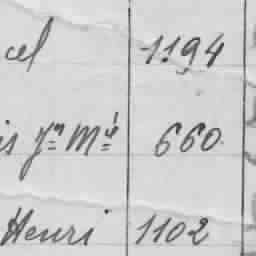 cel 1194
is Jn Mie 660
Henri 1102